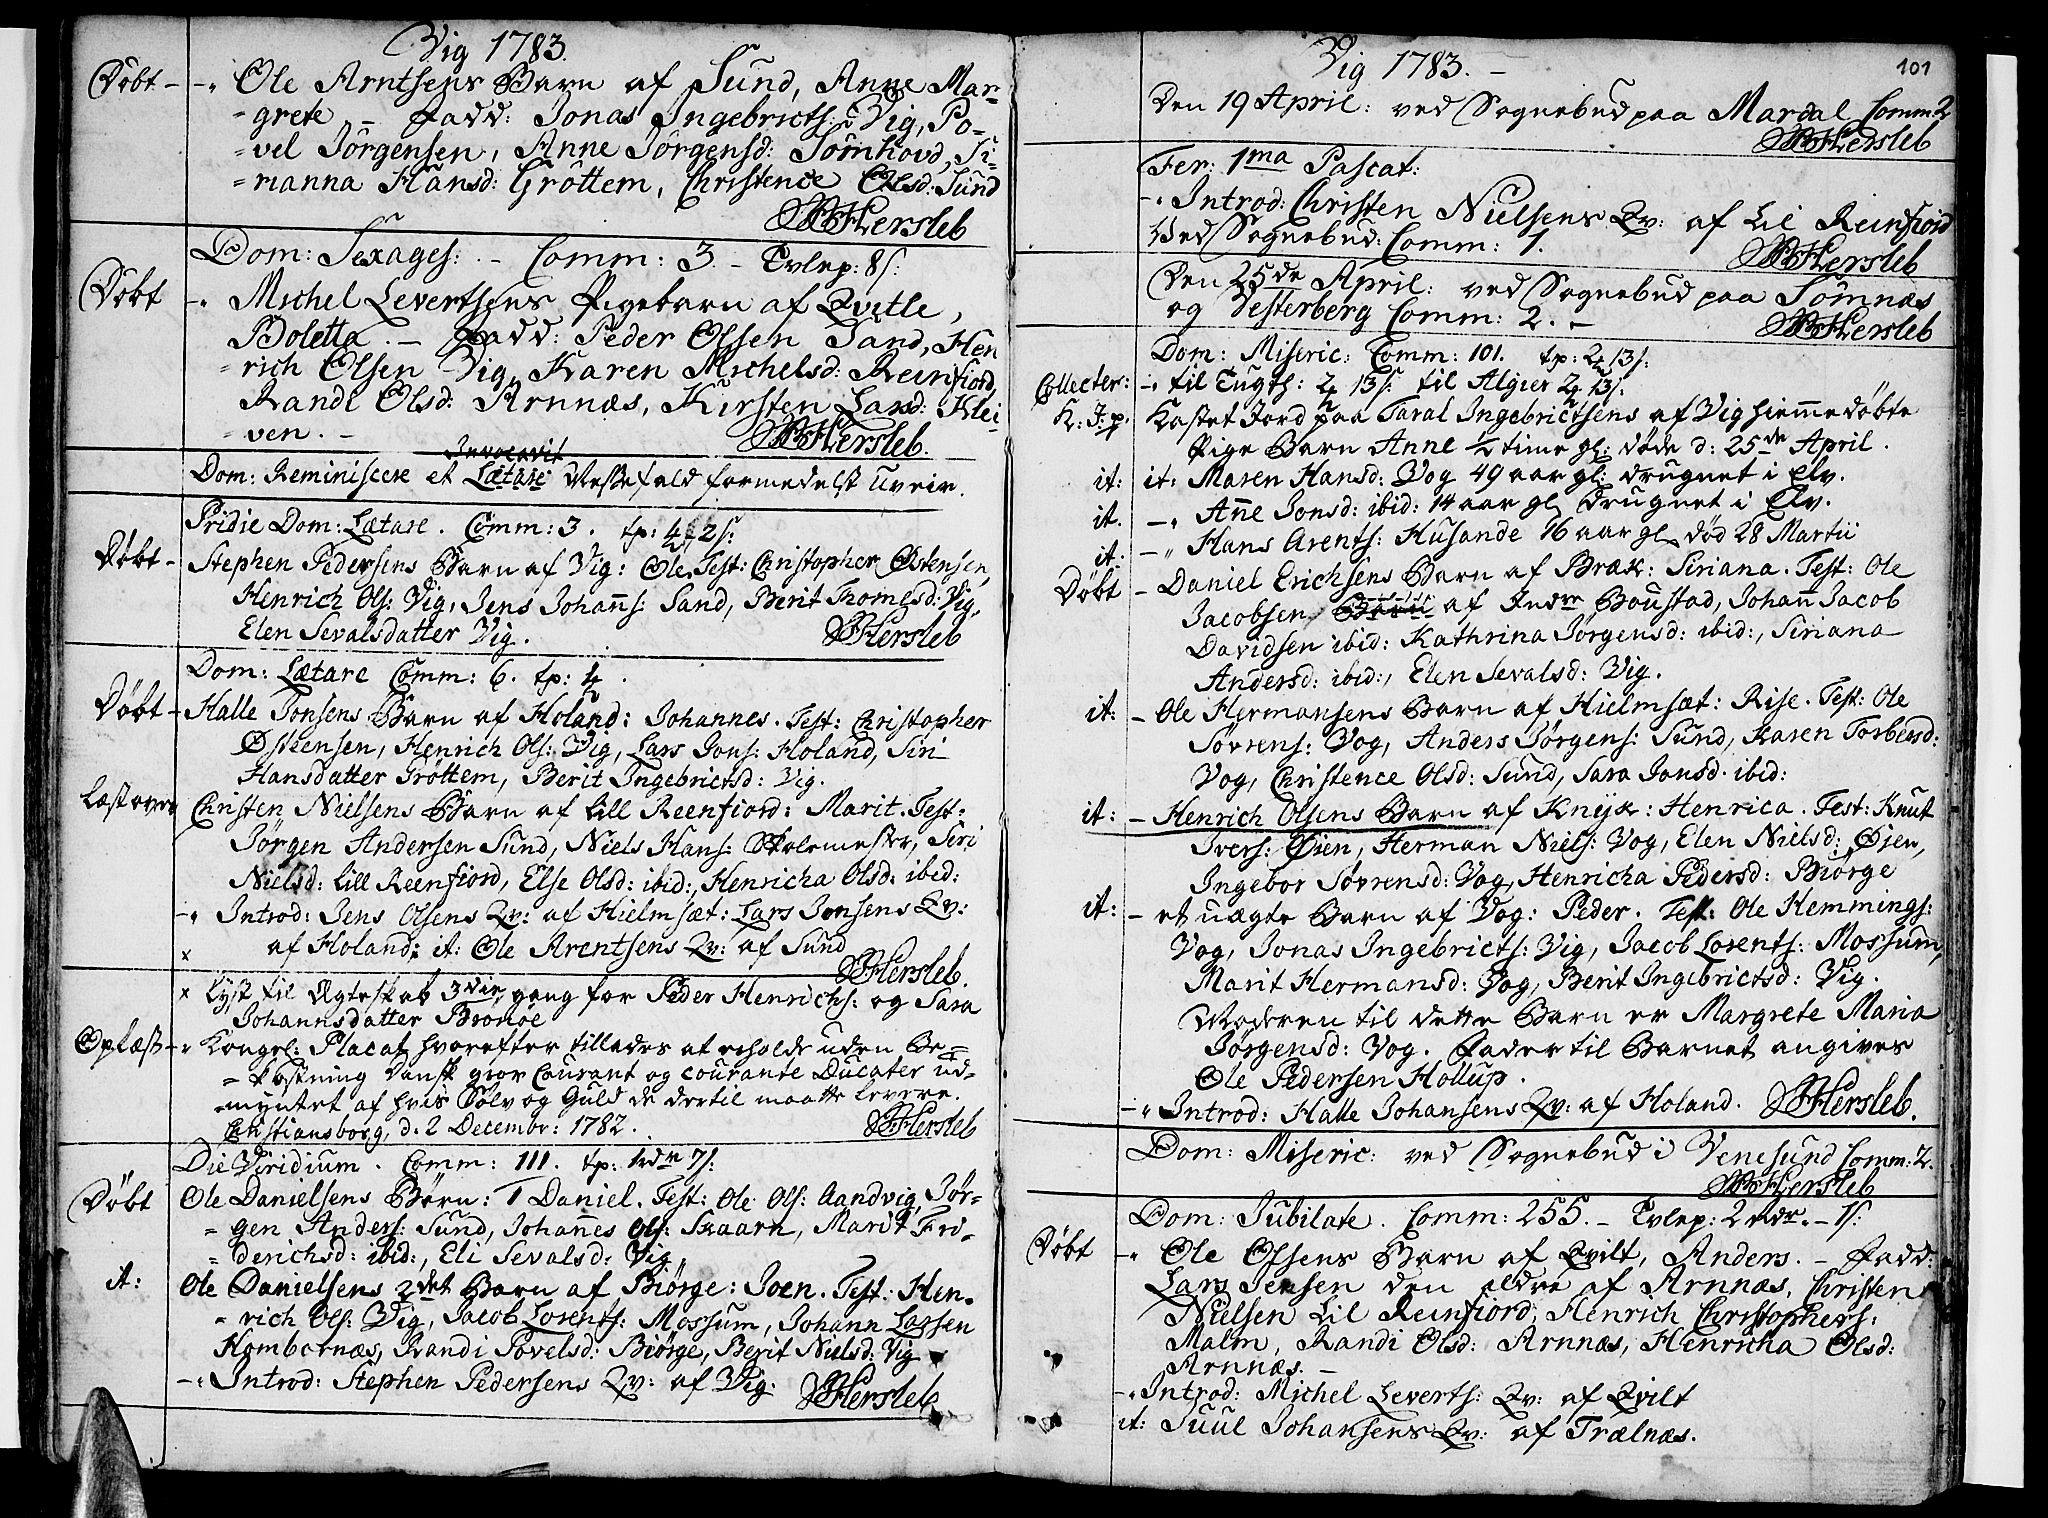 Vig 1783.
Döbt - -" Ole Arntsens Barn af Sund, Anne Mar-
=grete - Fadd: Jonas Ingebricts: Vig, Po-
=vel Jörgensen, Anne Jörgensd: Sömhovd, Si-
=rianna Hansd: Gröttem, Christence Olsd: Sund
Hersleb
Dom: Sexages: - Comm: 3. - Tvlep: 8 s:
Döbt -" Michel Levertsens Pigebarn af Qvitle,
Boletta. - Fadd: Peder Olsen Sand, Hen
=rich Olsen Vig, Karen Michelsd: Reinfiord,
Randi Olsd: Arnnæs, Kirsten Larsd: Klei-
=ven. -
Hersleb.
Invocavit
Dom: Reminiscere et Lætare Messefald formedelst Uveir.
Pridie Dom: Lætare. Comm: 3. tp: 4 2 s:
Döbt - Stephen Pedersens Barn af Vig: Ole. Test: Christopher Østensen,
Henrich Ols: Vig, Jens Johanns: Sand, Berit Thomesd: Vig,
Elen Sevalsdatter Vig.
Hersleb
Dom: Lætare Comm: 6. tp: 4
Döbt - Halle Jonsens Barn af Holand: Johannes. Test: Christopher
Østeensen, Henrich Ols: Vig, Lars Jons: Holand, Siri
Hansdatter Gröttem, Berit Ingebrictsd: Vig.
Læst over Christen Nielsens Barn af Lill Reenfiord: Marit. Test:
Jörgen Andersen Sund, Niels Hans: Skolemester, Siri
Nielsd: Lill Reenfiord, Else Olsd: ibid:, Henricha Olsd: ibid:
-" Introd: Jens Olsens Qv: af Hielmsæt: Lars Jonsens Qv:
x af Holand: it: Ole Arentsens Qv: af Sund
Hersleb.
x Lyst til Ægteskab 3die gang for Peder Henrichs: og Sara
Johannsdatter Brönöe
Oplæst -" Kongel: Placat hvorefter tillades at erholde uden Be=
=kostning Dansk grov Courant og courante Ducater ud-
=myntet af hvis Sölv og Guld de dertil maatte levere.
Christiansborg, d. 2 Decembr: 1782.
Hersleb
Die Viridium. Comm: 111. tp: 1rdr 7 s:
Döbt Ole Danielsens Börn: 1 Daniel. Test: Ole Ols: Aandvig, Jör-
=gen Anders: Sund, Johannes Ols: Skaarn, Marit Fri-
=derichsd: ibid:, Eli Sevalsd: Vig.
it: Ole Danielsens 2det Barn af Biörge: Joen. Test: Hen-
=rich Ols: Vig, Jacob Lorents: Mossum, Johann Larsen
Hombornæs, Randi Povelsd: Biörge, Berit Nielsd: Vig
-" Introd: Stephen Pedersens Qv: af Vig.
Hersleb
Vig 1783. -
101
Den 19 April: ved Sognebud paa Mardal Comm: 2
Hersleb
Fer: 1ma Pascat:
-" Introd: Christen Nielsens Qv: af Lil Reinfiord
Ved Sognebud: Comm: 1.
Hersleb
Den 25de April: ved Sognebud paa Sömnæs
og Vesterberg Comm: 2. -
Hersleb
Dom: Miseric: Comm: 101. tp: 2 13 s:
Collecter: -" til Tugth: 2 13 s: til Algier 2 13 s:
K: J: p: Kastet Jord paa Taral Ingebrictsens af Vig hiemmedöbte
Pige Barn Anne 1/2 time gl: döde d: 25de April.
it: it: Maren Hansd: Vog 49 aar gl: drugnet i Elv.
it. -" Anne Jonsd: ibid: 14 aar gl drugnet i Elv.
it: -" Hans Arents: Husande 16 aar gl död 28 Martii
Döbt - Daniel Erichsens Barn af Bræk: Siriana. Test: Ole
Jacobsen Barn af Indre Boustad, Johann Jacob
Davidsen ibid: Kathrina Jörgensd: ibid:, Siriana
Andersd: ibid:, Elen Sevalsd: Vig.
it: - Ole Hermansens Barn af Hielmsæt: Rise. Test: Ole
Sörrens: Vog, Anders Jörgens: Sund, Karen Torbersd:
Vog, Christence Olsd: Sund, Sara Jonsd. ibid:
it: - Henrich Olsens Barn af Knyk: Henrica. Test: Knut
Ivers: Øien, Herman Niels: Vog, Elen Nielsd: Øien,
Ingebor Sörrensd: Vog, Henricha Pedersd: Biörge
it: - et uægte Barn af Vog: Peder. Test: Ole Hemmings:
Vog, Jonas Ingebricts: Vig, Jacob Lorents: Mossum,
Marit Hermansd: Vog, Berit Ingebrictsd: Vig.
Moderen til dette Barn er Margrete Maria
Jörgensd: Vog. Fader til Barnet angives
Ole Pedersen Hollup.
-" Introd: Halle Johansens Qv: af Holand.
Hersleb.
Dom: Miseric: ved Sognebud i Venesund Comm: 2.
Hersleb
Dom: Jubilate. Comm: 255. - Tvlep: 2 Rdr. - 1 s:
Döbt -" Ole Olsens Barn af Qvilt, Anders. - Fadd:
Lars Jensen den ældre af Arnnæs, Christen
Nielsen Lil Reinfiord, Henrich Christophers:
Malm, Randi Olsd: Arnnæs, Henricha Olsd:
Arnnæs. -
-" Introd: Michel Leverts: Qv: af Qvilt
it: Juul Johansens Qv: af Trælnæs.